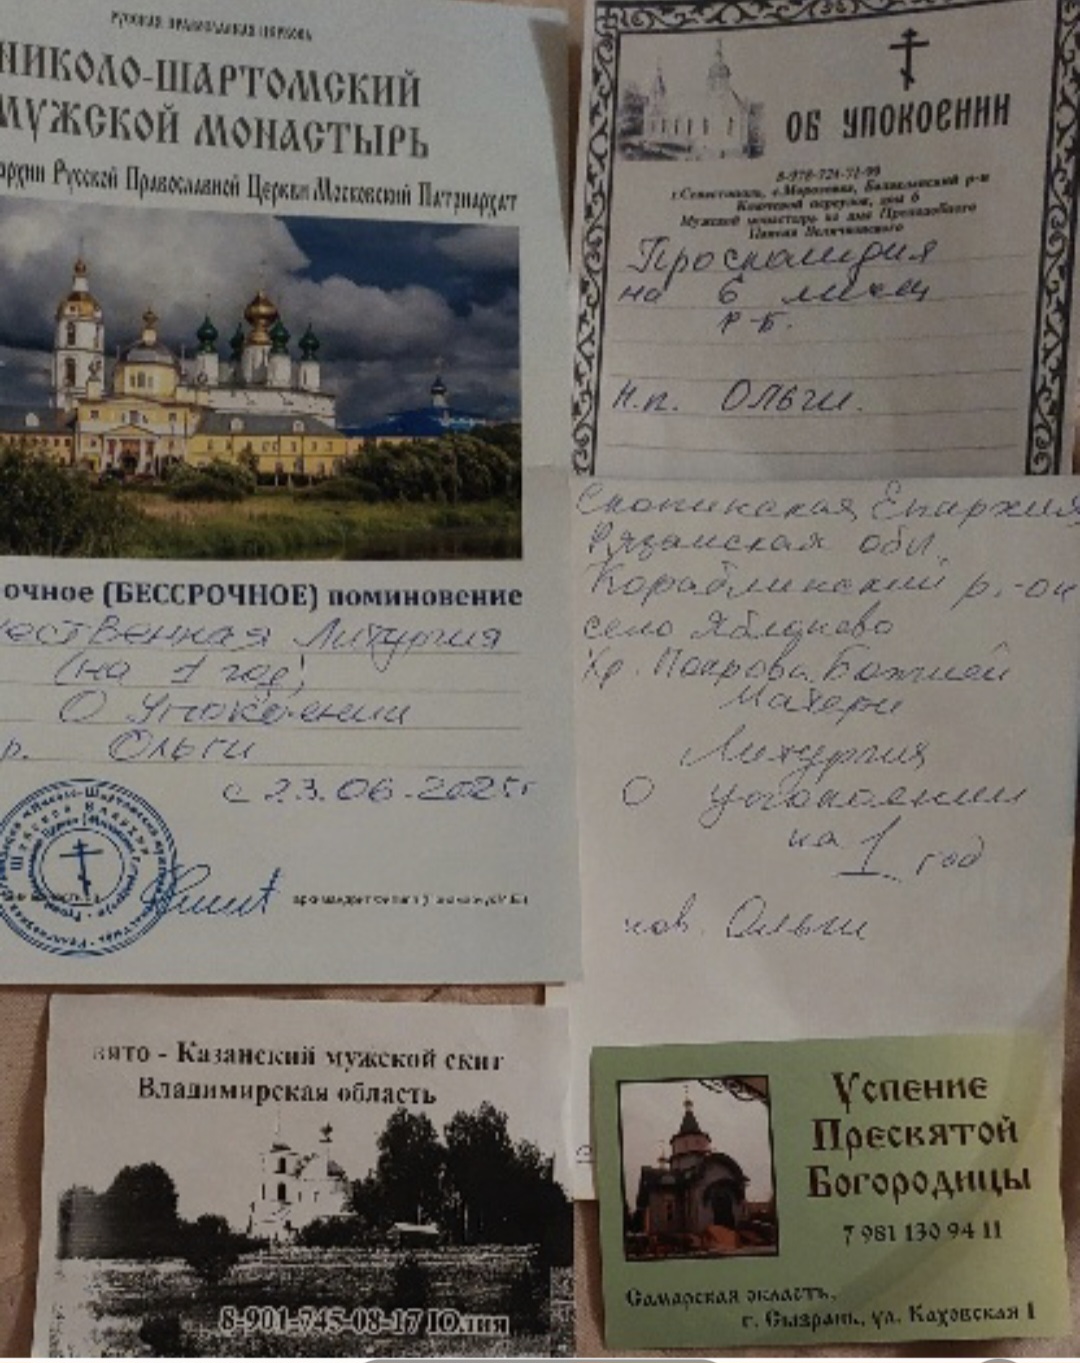 РУССКАЯ ПРАВОСЛАВНАЯ ЦЕРКОВЬ
НИКОЛО-ШАРТОМСКИЙ
МУЖСКОЙ МОНАСТЫРЬ
архии Русской Православной Церкви Московский Патриархат
очное (БЕССРОЧНОЕ) поминовение
ественная Литургия
(на 1 год)
О Упокоении
р. Ольги
с 23.06.2025г
ОБ УПОКОЕНИИ
8-978-724-71-99
г.Севастополь, с.Морозовка, Балаклавский р-н
Ключевой переулок, дом 6
Мужской монастырь во имя Преподобного
Паисия Величковского
Проскомидия
на 6 месяц
Р.Б.
н.п. Ольги.
Скопинская Епархия
Рязанская обл.
Кораблинский р.-он
село Яблонево
Хр. Покрова Божией
Матери
Литургия
О упокоении
на 1 год
нов. Ольги
вято - Казанский мужской скит
Владимирская область
8-901-745-08-17 Юлия
Успение
Пресвятой
Богородицы
7 981 130 94 11
Самарская область,
г. Сызрань, ул. Каховская 1